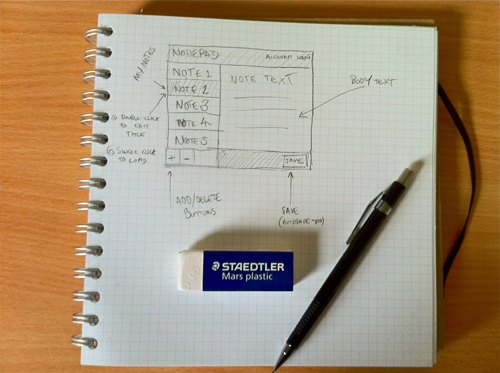 NOTEPAD
MY NOTES
NOTE 1
NOTE 2
NOTE 3
NOTE 4
NOTE 5
NOTE TEXT
BODY TEXT
① DOUBLE-CLICK
TO EDIT
TITLE
② SINGLE CLICK
TO LOAD
+ -
SAVE
ADD/DELETE
BUTTONS
SAVE
STAEDTLER
Mars plastic